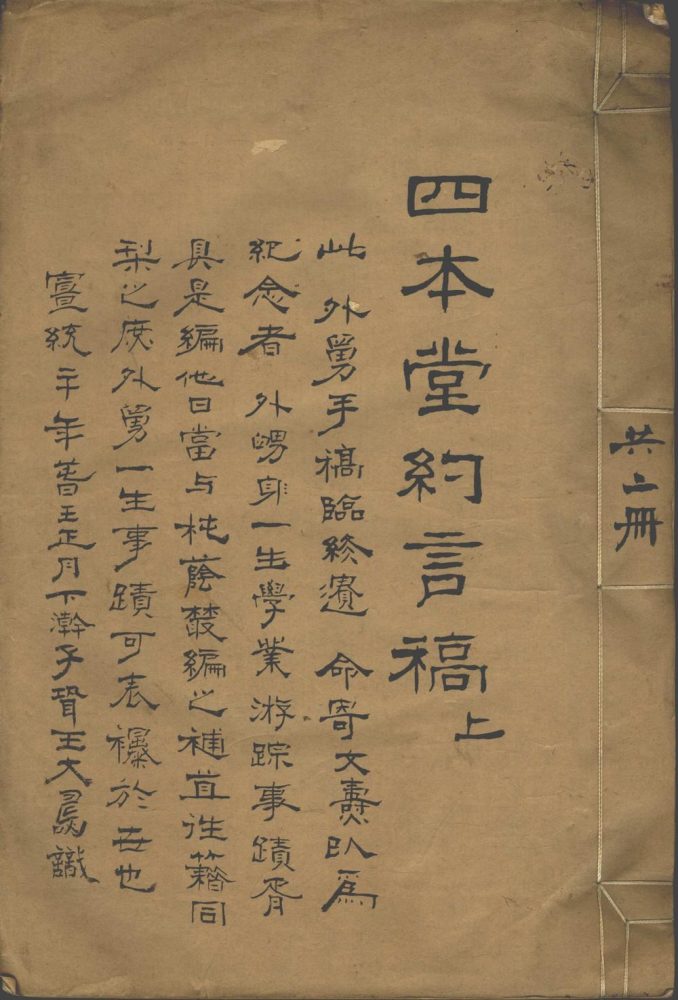 共二冊
四本堂約言稿上
此 外舅手稿臨終遺 命寄文燾以為
紀念者 外舅一生學業游踪事蹟胥
具是編他日當与杶蔭叢編之補苴往籍同
梨之庶外舅一生事蹟可表襮於世也
宣統二年萅王正月下澣子壻王大識